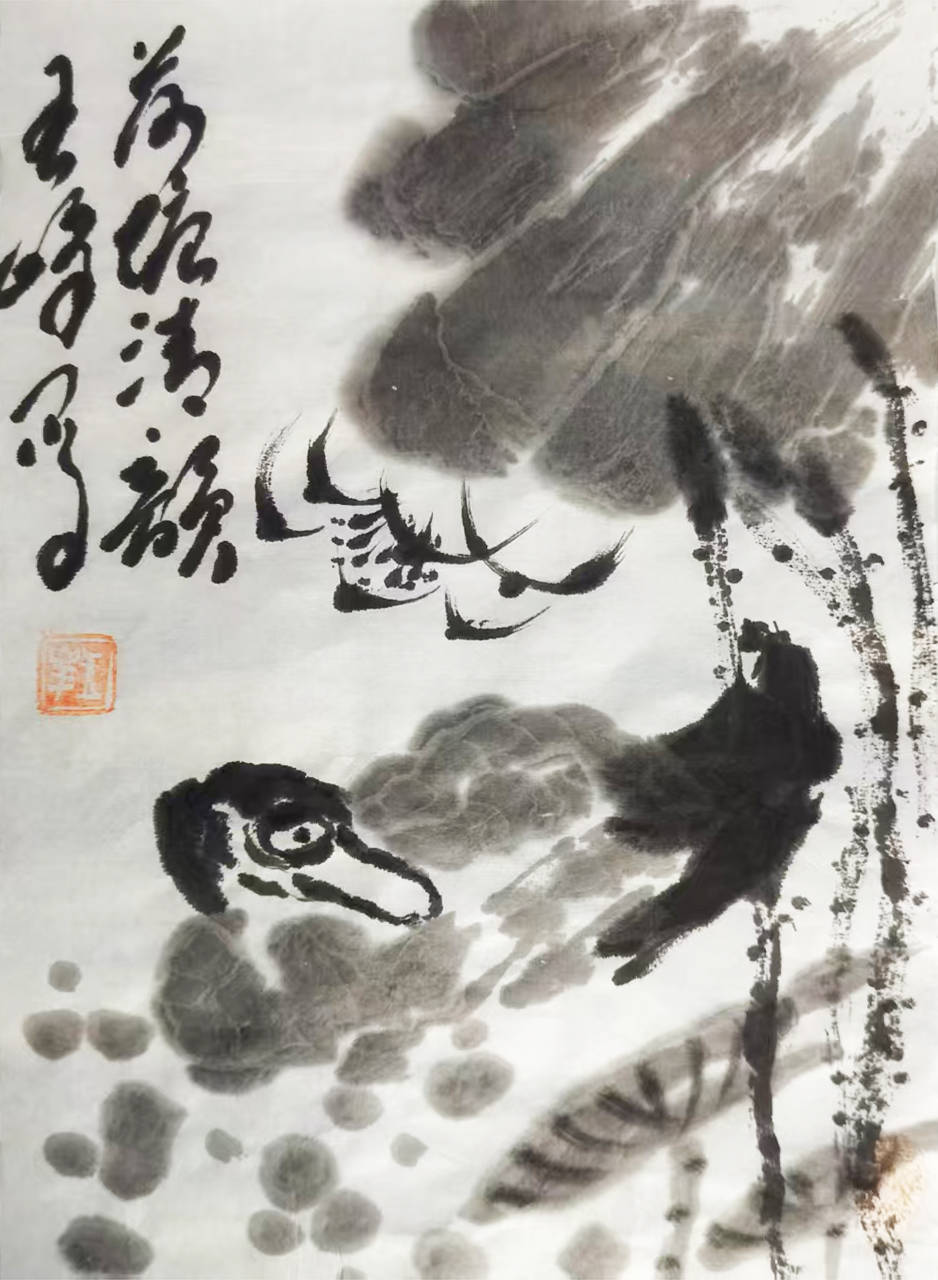 荷塘清韻
王峰写